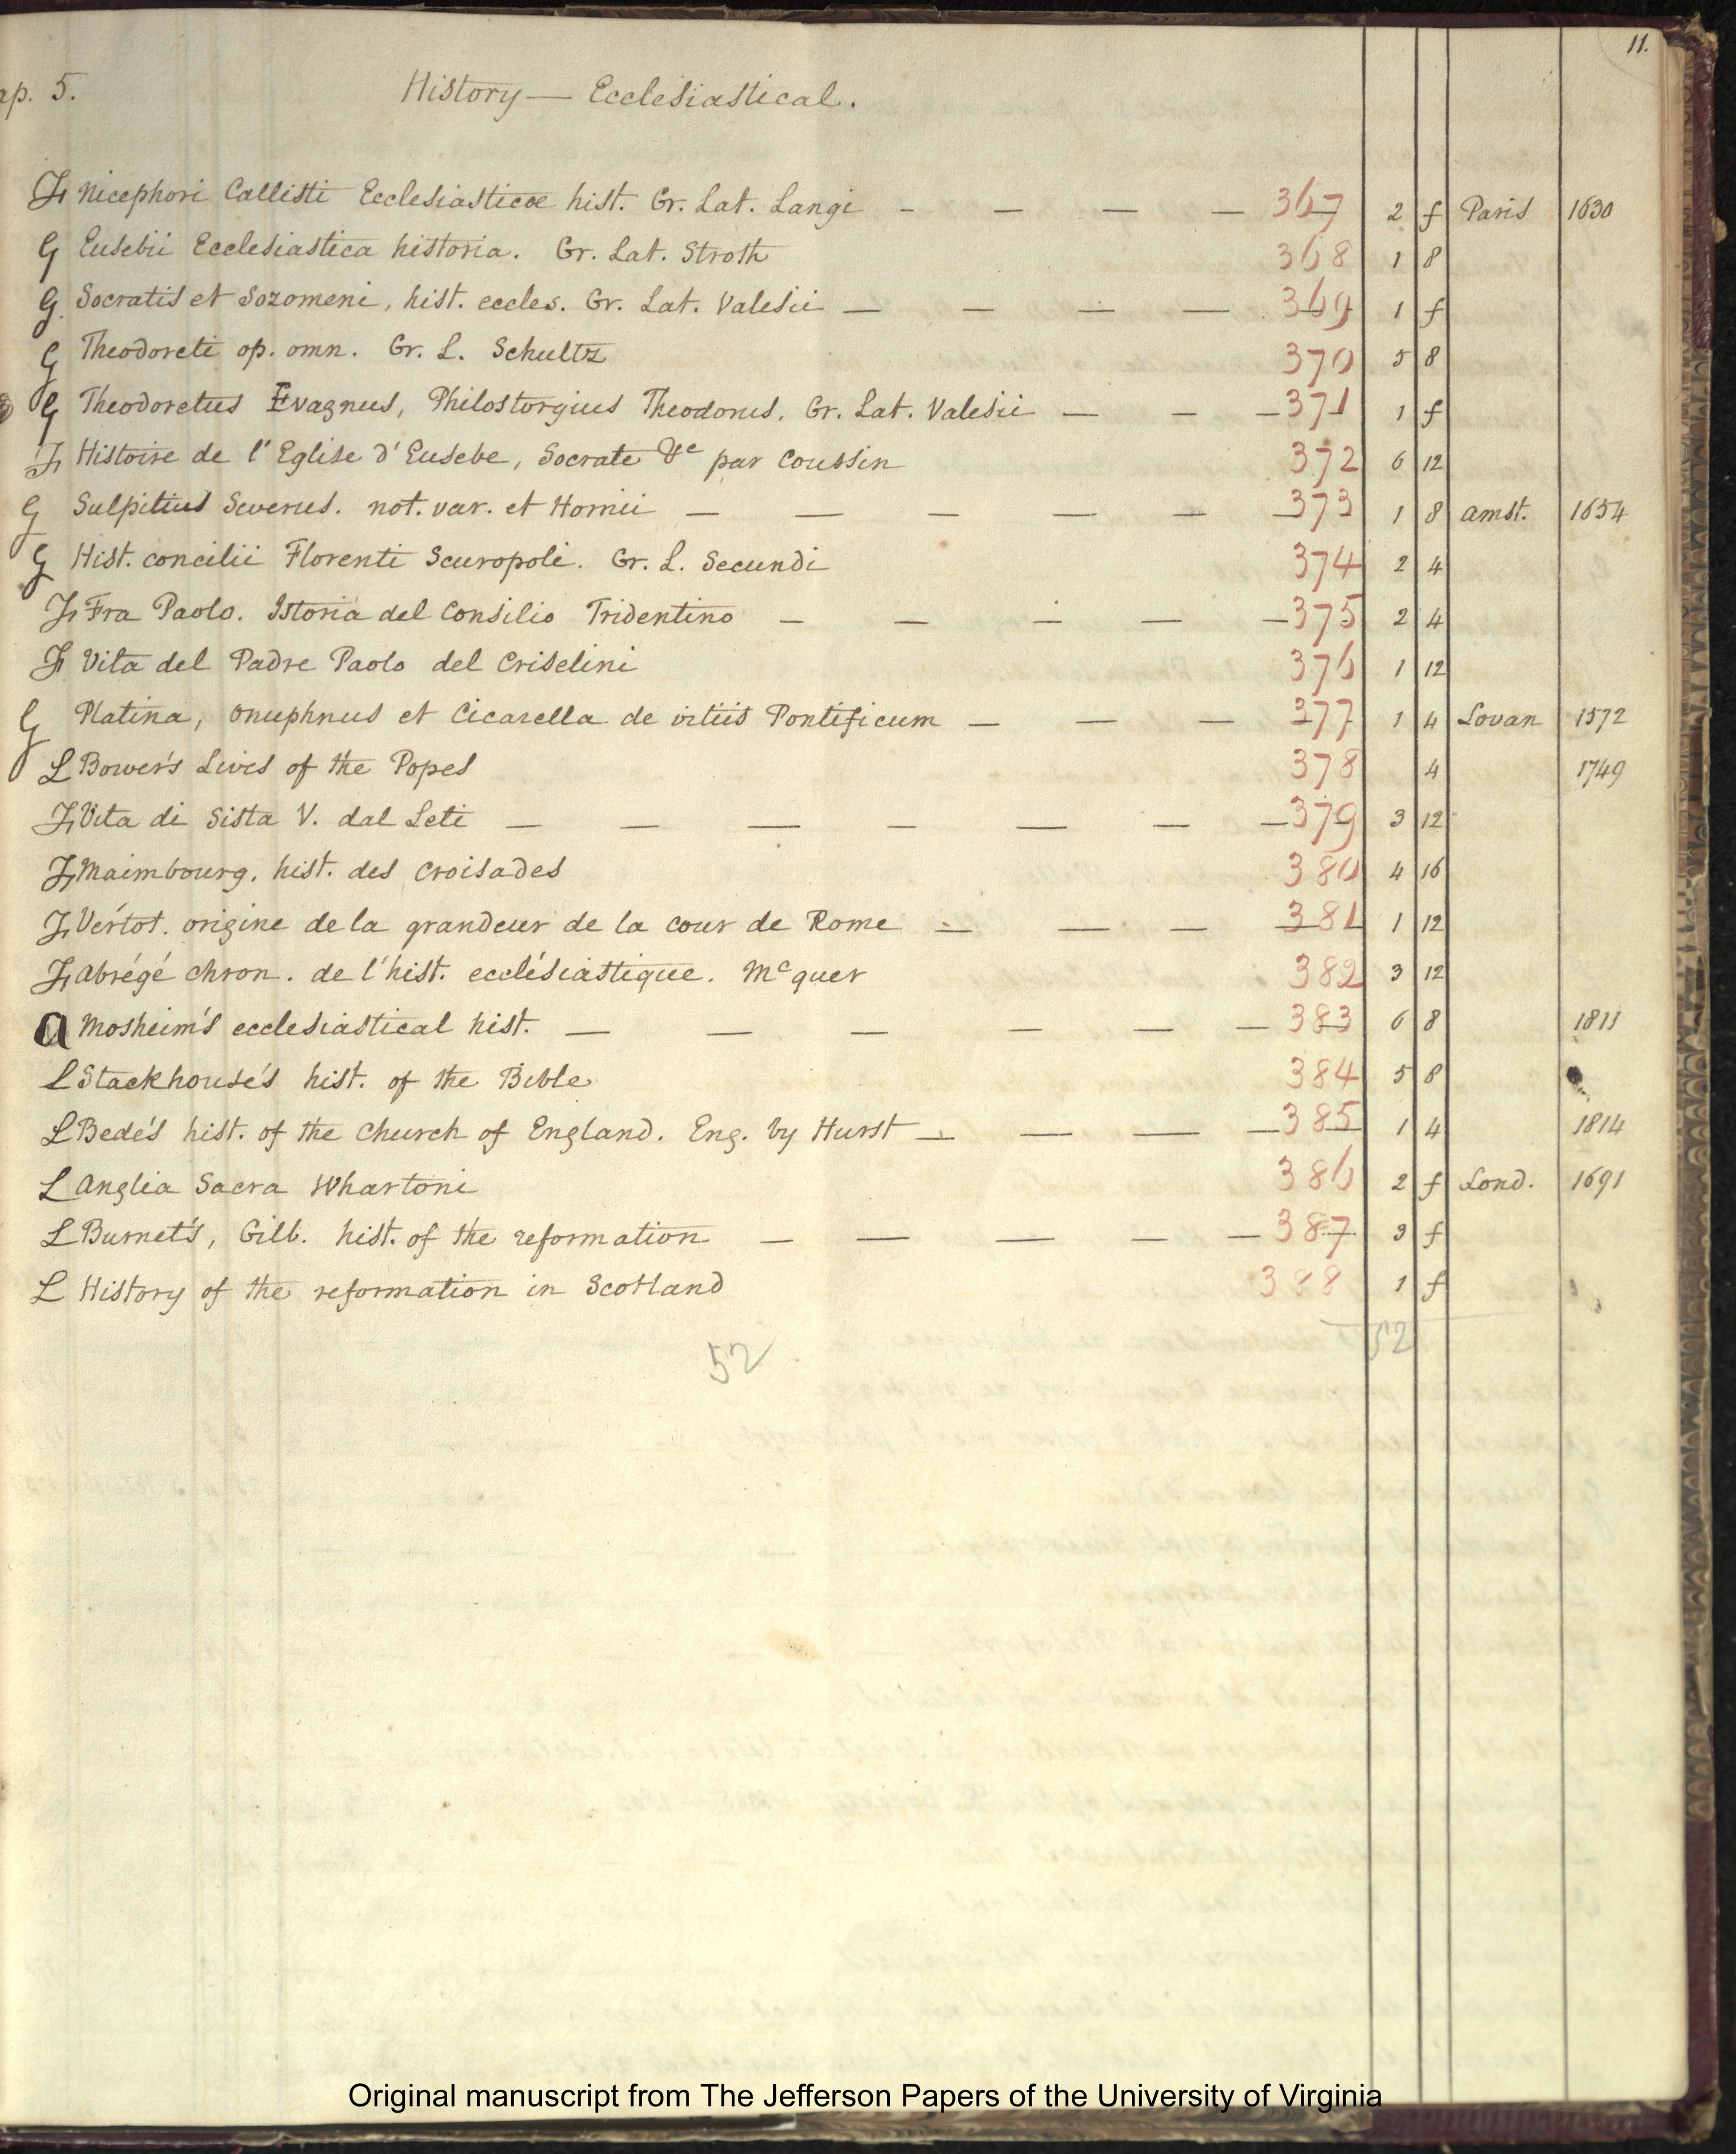 11.
ap. 5. History — Ecclesiastical.
Nicephori Callisti Ecclesiasticæ hist. Gr. Lat. Langi - — — — 367 2 f Paris 1630
G Eusebii Ecclesiastica historia. Gr. Lat. Stroth 368 1 8
G. Socratis et Sozomeni, hist. eccles. Gr. Lat. Valesii — — — — 369 1 f
G Theodoreti op. omn. Gr. L. Schultz 370 5 8
G Theodoretus Evagrius, Philostorgius Theodorus. Gr. Lat. Valesii — - — 371 1 f
Histoire de l'Eglise d'Eusebe, Socrate &c par Coussin 372 6 12
G Sulpitius Severus. not. var. et Hornii — — — — — — 373 1 8 Amst. 1654
G Hist. concilii Florenti Scuropoli. Gr. L. Secundi 374 2 4
Fra Paolo. Istoria del Consilio Tridentino — — — — — 375 2 4
Vita del Padre Paolo del Criselini 376 1 12
G Platina, Onuphrius et Cicarella de vitiis Pontificum — — — 377 1 4 Lovan 1572
L Bower's Lives of the Popes 378 4 1749
Vita di Sista V. dal Leti — — — — — — — 379 3 12
Maimbourg. hist. des Croisades 380 4 16
Vertot. origine de la grandeur de la cour de Rome — — — — 381 1 12
abrégé chron. de l'hist. ecclésiastique. Mc quer 382 3 12
a Mosheim's ecclesiastical hist. — — — — — — 383 6 8 1811
L Stackhouse's hist. of the Bible 384 5 8
L Bede's hist. of the Church of England. Eng. by Hurst — — — — 385 1 4 1814
L Anglia Sacra Whartoni 386 2 f Lond. 1691
L Burnet's, Gilb. hist. of the reformation — — — — — 387 3 f
L History of the reformation in Scotland 388 1 f
52 52
Original manuscript from The Jefferson Papers of the University of Virginia